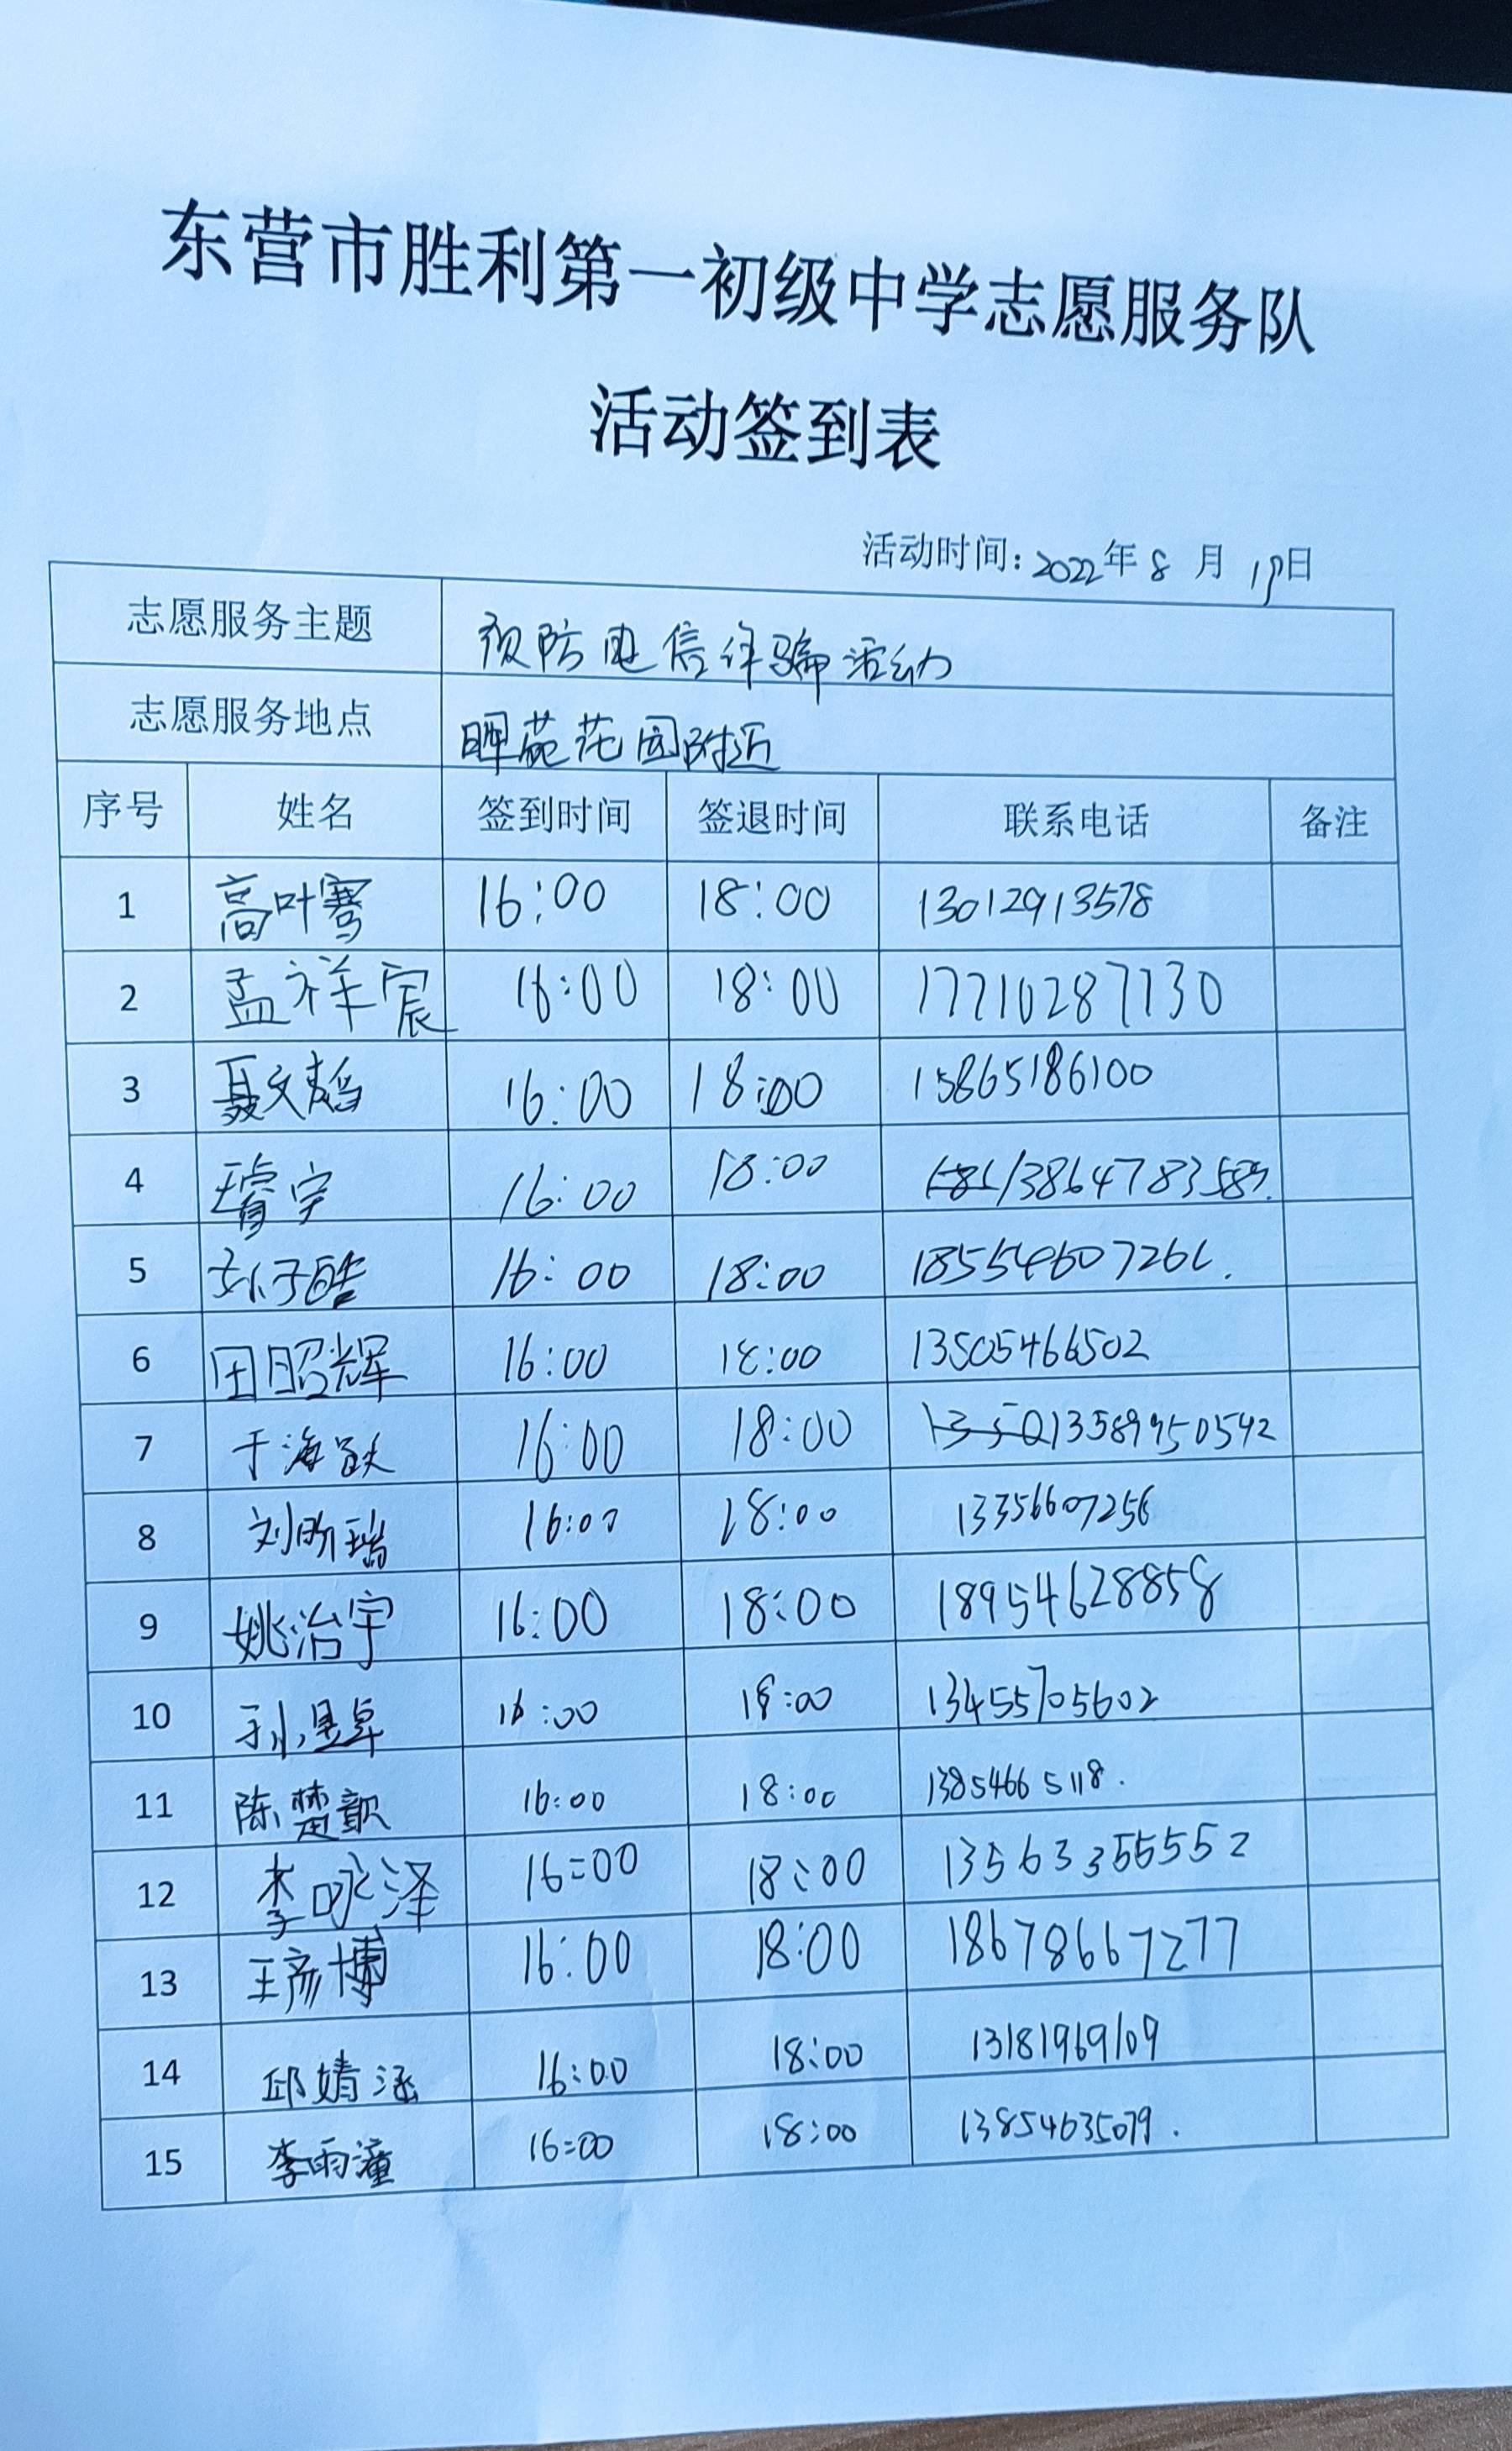 东营市胜利第一初级中学志愿服务队
活动签到表
活动时间: 2022年 8 月 19日
志愿服务主题 预防电信诈骗活动
志愿服务地点 晖苑花园附近
序号 姓名 签到时间 签退时间 联系电话 备注
1 高叶骞 16:00 18:00 13012913578
2 孟祥宸 16:00 18:00 17710287130
3 聂文 16:00 18:00 15865186100
4 睿宇 16:00 18:00 13864783589
5 16:00 18:00
6 田昭辉 16:00 18:00 13505466502
7 于海跃 16:00 18:00 13589950542
8 刘昕瑞 16:00 18:00 13356607256
9 姚治宇 16:00 18:00 18954628858
10 孙昱卓 16:00 18:00 13455705602
11 陈楚歆 16:00 18:00 13854665118.
12 李咏泽 16:00 18:00 13563355552
13 王彦博 16:00 18:00 18678667277
14 邱婧涵 16:00 18:00 13181969109
15 李雨潼 16:00 18:00 13854635079.